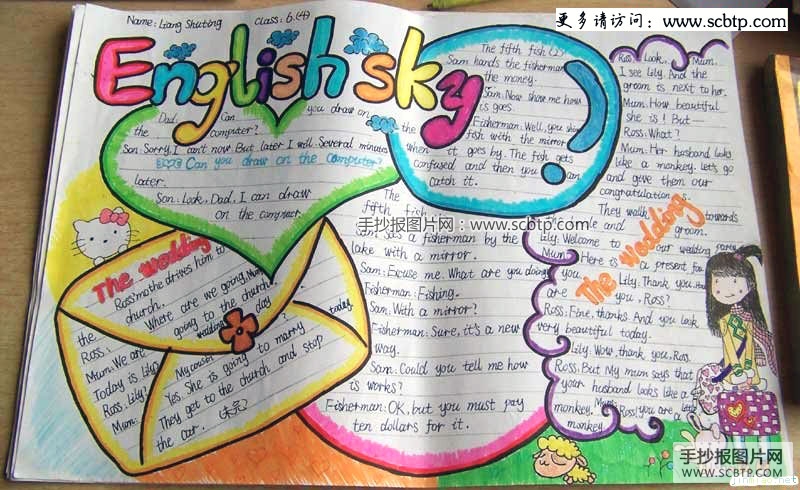 更多请访问：www.scbtp.com
Name: Liang Shuting Class: 6.(4)
English sky
Dad: Can you draw on
the computer?
Son: Sorry, I can't now. But later I will. Several minutes
Can you draw on the computer?
later.
Son: Look, Dad, I can draw
on the computer.
The fifth fish (2)
Sam hands the fisherman
the money.
Sam: Now show me how
is goes.
Fisherman: Well, you shine
the fish with the mirror
when it goes by. The fish gets
confused and then you can
catch it.
The
fifth fish
Sam sees a fisherman by the
lake with a mirror.
Sam: Excuse me. What are you doing?
Fisherman: Fishing.
Sam: With a mirror?
Fisherman: Sure, it's a new
way.
Sam: Could you tell me how
is works?
Fisherman: OK, but you must pay
ten dollars for it.
手抄报图片网：www.scbtp.com
The wedding
Ross' mothe drives him to
the church.
Ross: Where are we going, Mum?
Mum: We are going to the church.
Today is Lily wedding day
Ross: Lily? today.
Mum: My cousin
Yes. She is going to marry
They get to the church and stop
the car.
Ross: Look, Mum.
I see Lily. And the
groom is next to her.
Mum: How beautiful
she is! But—
Ross: What?
Mum: Her husband looks
like a monkey. let's go
and give them our
congratulation s.
They walk towards
groom.
Lily: Welcome to our wedding party.
Mum: Here is a present for
you.
Lily: Thank you. How
are you, Ross?
Ross: Fine, thanks. And you look
very beautiful today.
Lily: Wow, thank you, Ross.
Ross: But My mum says that
your husband looks like a
monkey.
Mum: Ross, you are little
monkey
The wedding
手抄报图片网
www.scbtp.com